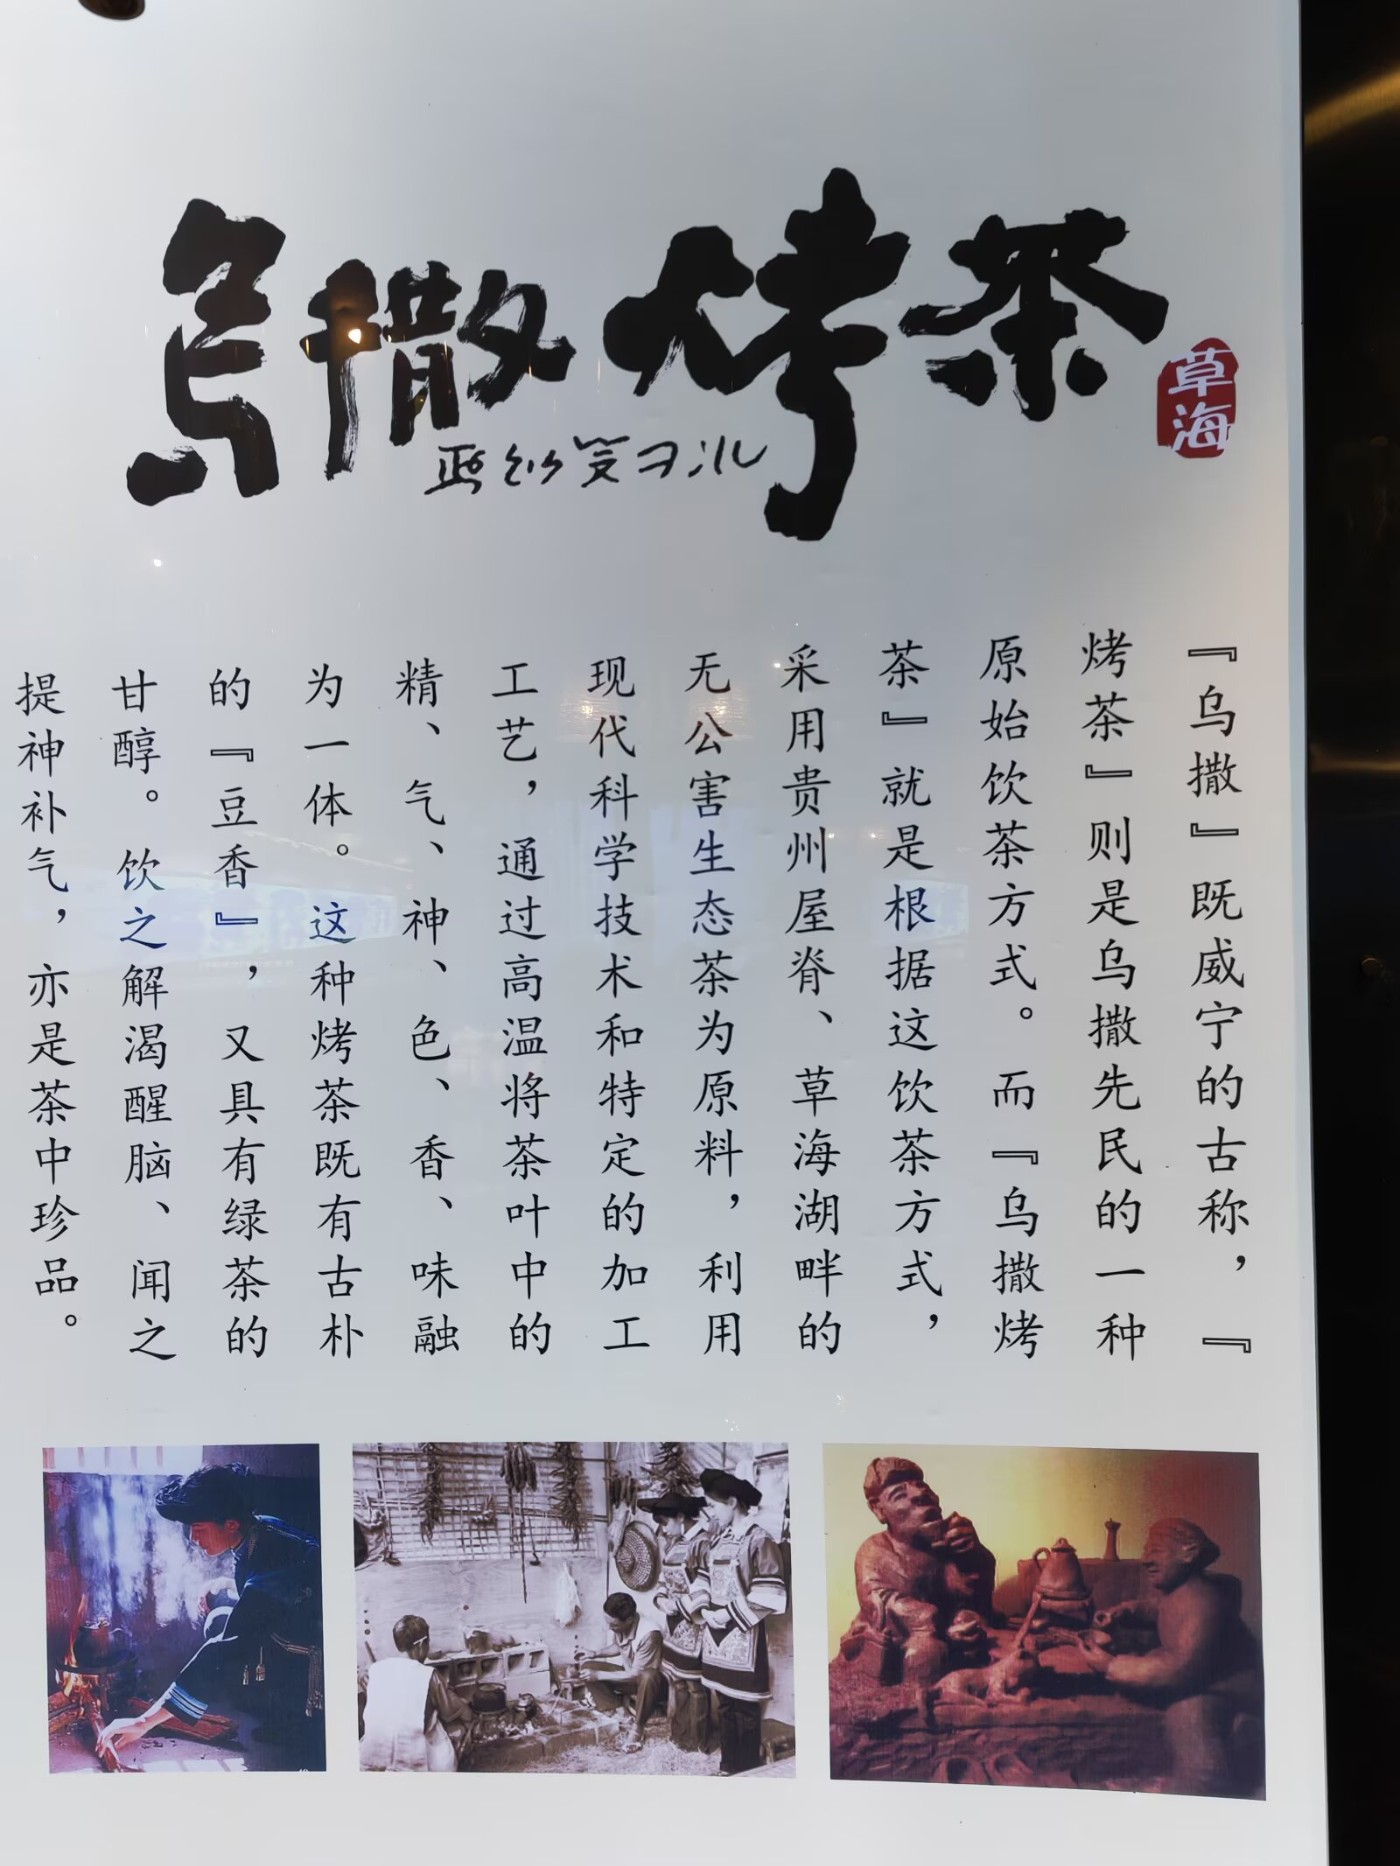 乌撒烤茶
草海
『乌撒』既威宁的古称，『
烤茶』则是乌撒先民的一种
原始饮茶方式。而『乌撒烤
茶』就是根据这饮茶方式，
采用贵州屋脊、草海湖畔的
无公害生态茶为原料，利用
现代科学技术和特定的加工
工艺，通过高温将茶叶中的
精、气、神、色、香、味融
为一体。这种烤茶既有古朴
的『豆香』，又具有绿茶的
甘醇。饮之解渴醒脑、闻之
提神补气，亦是茶中珍品。